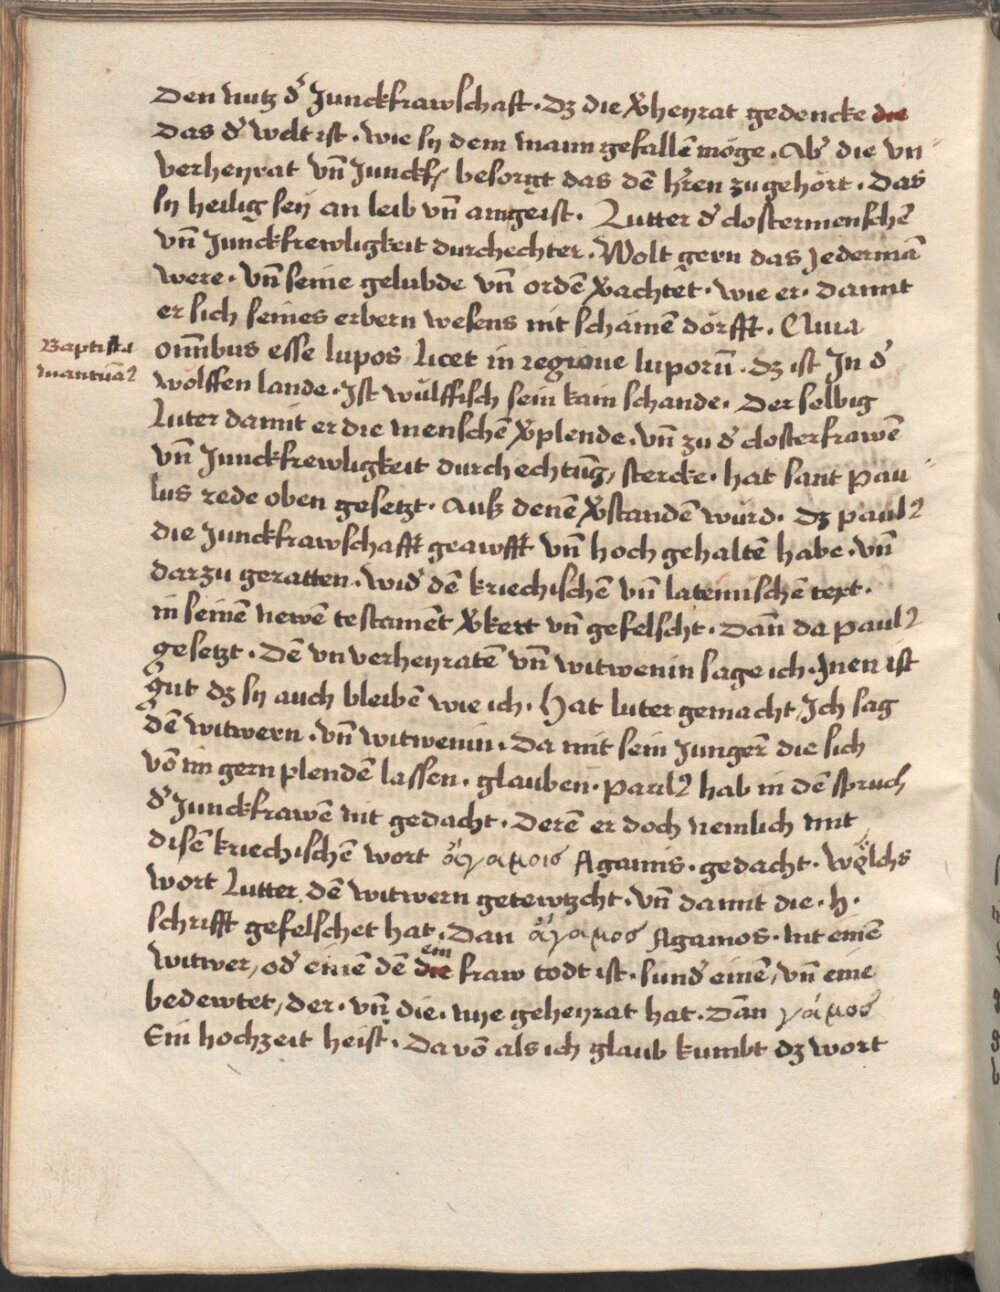 Den nutz dˀ Junckfrawschafft. Dz die v̈heyrat gedencke die
Das dˀ welt ist. wie sy dem mann gefallē möge. Abˀ die vn⸗
verheyrat vn̄ Junckf. besorgt das dē hˀren zugehört. Das
sy heilig sey an leib vn̄ am geist. Lutter dˀ clostermenschē
vn̄ Junckfrewligkeit durchechter. Wolt gern das Jedermā
were. vn̄ seine gelubde vn̄ ordē v̈achtet. wie er. damit
er sich seines erbern wesens nit schamē dörfft. Quia
Baptista
mantuāꝰ
om̄ibus esse lupos licet in regione luporū. Dz ist In dˀ
wölffen lande. Ist wülffisch sein kain schande. Der selbig
Luter damit er die menschē v̈plende. vn̄ zu dˀ closterfrawē
vn̄ Junckfrewligkeit durchechtūg, stercke. hat sant pau⸗
lus rede oben gesetzt. Auß denē v̈standē würd. Dz paulꝰ
die Junckfrawschafft geawfft vn̄ hoch gehaltē habe. vn̄
darzu geratten. widˀ dē kriechischē vn̄ lateinischē text.
in seinē newē testamēt v̈kert vn̄ gefelscht. Dan̄ da paulꝰ
gesetzt. Dē vnverheyratē vn̄ witwenin sage ich. Inen ist
gut dz sy auch bleibē wie ich. Hat luter gemacht, Ich sag
dē witwern. vn̄ witwenin. Da mit sein Jungerˀ die sich
vō im gern plendē lassen. glauben. paulꝰ hab in dē spruch
dˀ Junckfrawē nit gedacht. Derē er doch nemlich mit
disē kriechischē wort ἀγαμοις Agamis. gedacht. wölchs
wort Lutter dē witwern getewtzcht. vn̄ damit die. h.
schrifft gefelschet hat. Dan ἀγαμος Agamos. nit einē
witwer, odˀ einē dē die ein fraw todt ist. sundˀ einē, vn̄ eine
bedewtet, der. vn̄ die. nye geheyrat hat. Dān γάμος
Ein hochzeit heist. Da vō als ich glaub kumbt dz wort